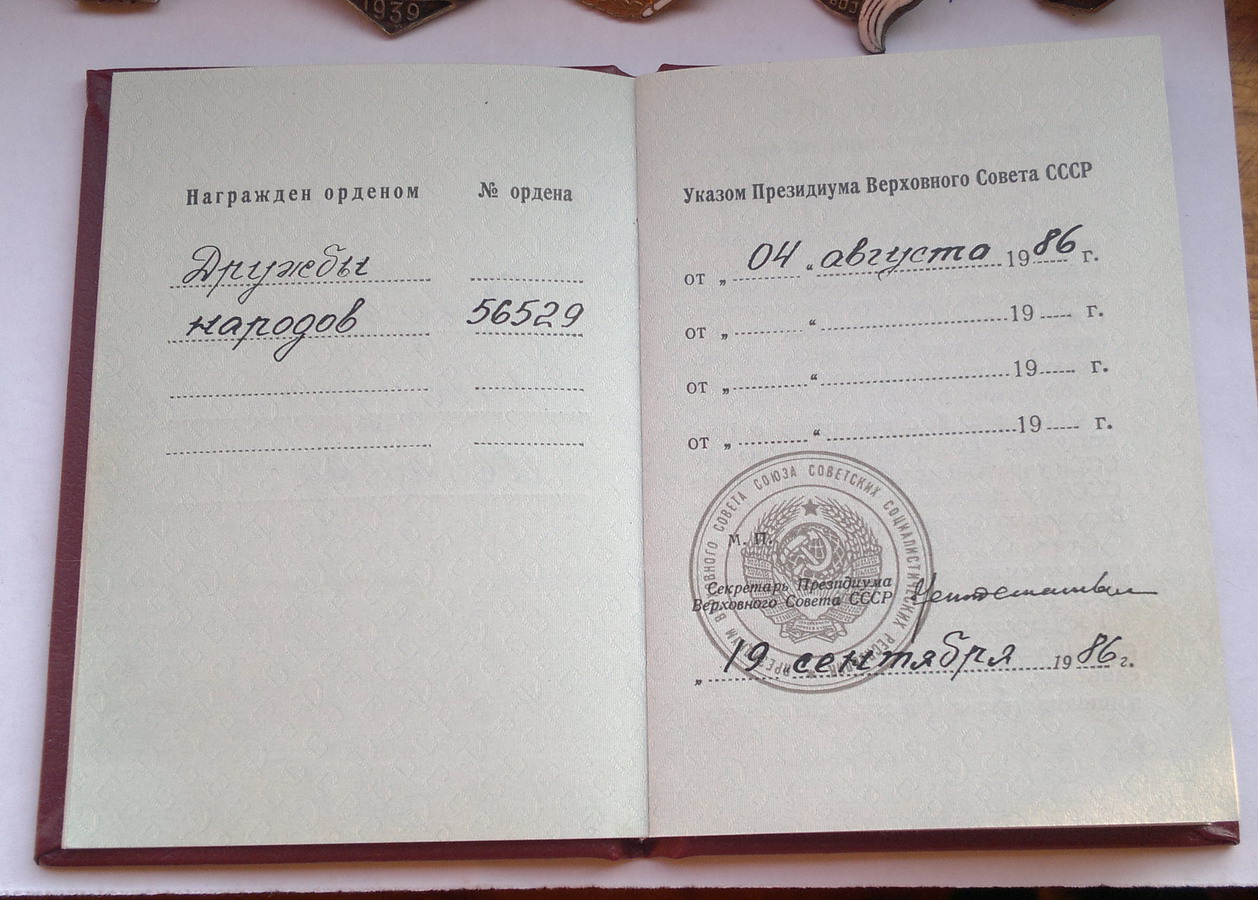 1939
Награжден орденом
№ ордена
Дружбы
народов
56529
Указом Президиума Верховного Совета СССР
от „ 04 “ августа 1986 г.
от „ “ 19 г.
от „ “ 19 г.
от „ “ 19 г.
СОВЕТА СОЮЗА СОВЕТСКИХ СОЦИАЛИСТИЧЕСКИХ
М. П.
Секретарь Президиума
Верховного Совета СССР
„ 19 сентября 1986 г.